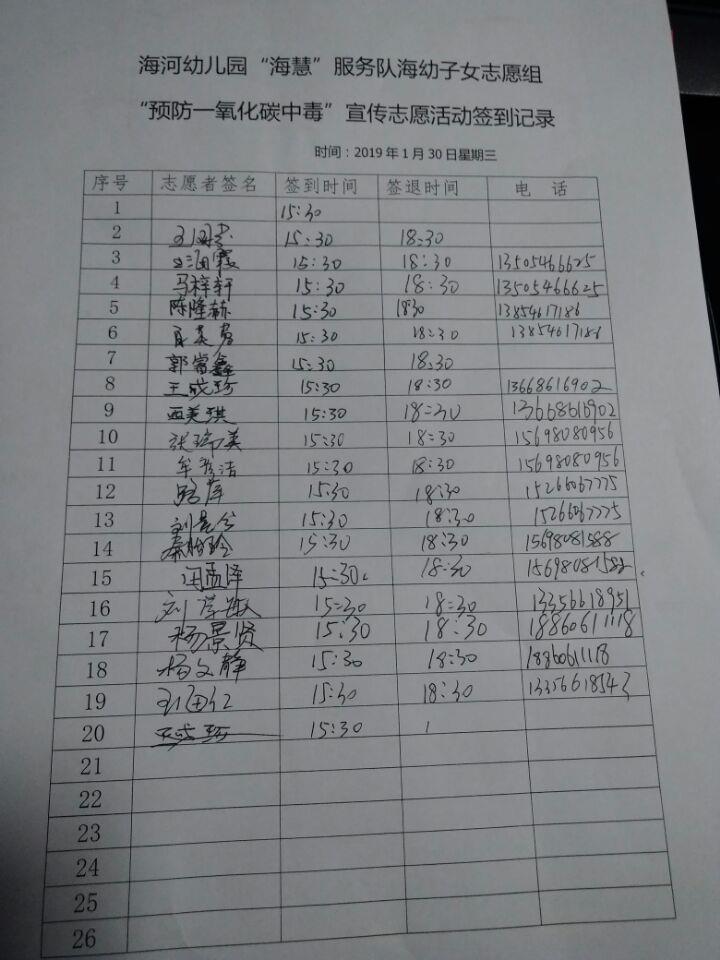 海河幼儿园“海慧”服务队海幼子女志愿组
“预防一氧化碳中毒”宣传志愿活动签到记录
时间：2019年1月30日星期三
序号 志愿者签名 签到时间 签退时间 电 话
1 15:30
2 15:30 18:30
3 15:30 18:30 13505466625
4 马梓轩 15:30 18:30 13505466625
5 陈隆赫 15:30 18:30 13854617186
6 15:30 18:30 13854617186
7 郭富鑫 15:30 18:30
8 王成珍 15:30 18:30 13668616902
9 西美琪 15:30 18:30 13668616902
10 张瑞美 15:30 18:30 15698080956
11 15:30 18:30 15698080956
12 15:30 18:30 15266067775
13 15:30 18:30 15266067775
14 15:30 18:30 15698081588
15 闫孟泽 15:30 18:30
16 15:30 18:30 13356618951
17 杨景贤 15:30 18:30 18860611118
18 杨文静 15:30 18:30
19 15:30 18:30
20 15:30
21
22
23
24
25
26